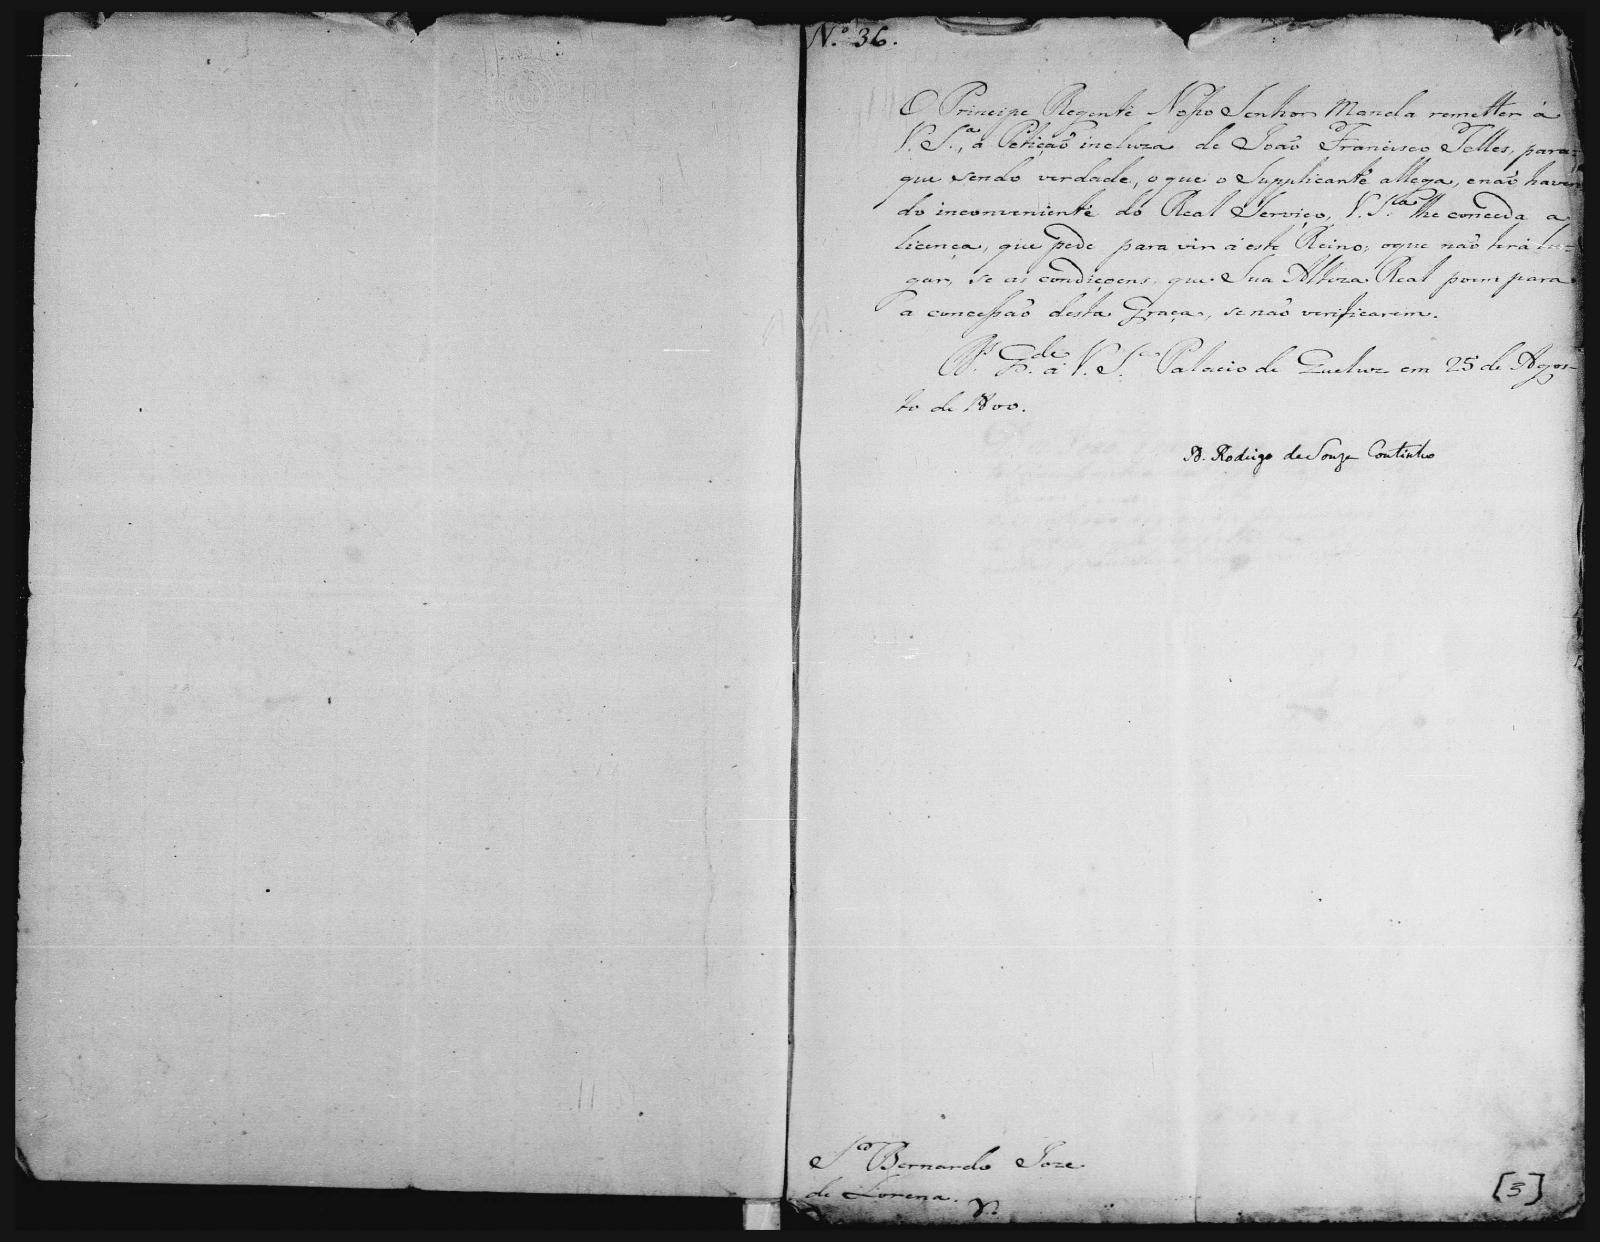 N.º 36.
O Principe Regente Nosso Senhor Manda remetter á
V. S.ª, a Petição incluza de João Francisco Telles, para
que sendo verdade, o que o Supplicante allega, e não haven
do inconveniente do Real Serviço, V. S.ª lhe conceda a
licença, que pede para vir a este Reino; o que não terá lu-
gar, se as condiçoens, que Sua Alteza Real poem para
a concessão desta Graça, se não verificarem.
D.s G.de a V. S.ª Palacio de Queluz em 25 de Agos-
to de 1800.
D. Rodrigo de Souza Coutinho
S.r Bernardo Joze
de Lorena.
[3]